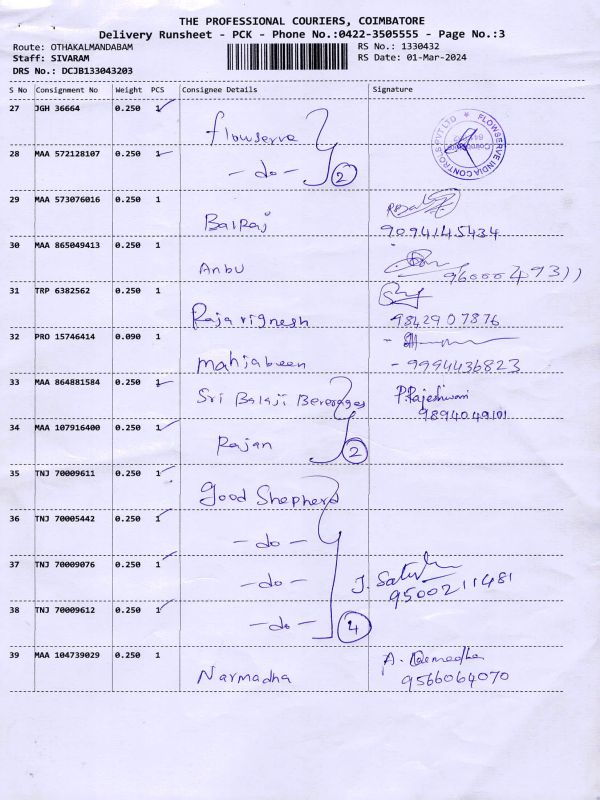 THE PROFESSIONAL COURIERS, COIMBATORE
Delivery Runsheet - PCK - Phone No.:0422-3505555 - Page No.:3
Route: OTHAKALMANDABAM RS No.: 1330432
Staff: SIVARAM RS Date: 01-Mar-2024
DRS No.: DCJB133043203
S No Consignment No Weight PCS Consignee Details Signature
27 JGH 36664 0.250 1 flowserve
FLOWSERVE INDIA CONTROLS PVT LTD
28 MAA 572128107 0.250 1 - do - 2
29 MAA 573076016 0.250 1 Balraj 9094145434
30 MAA 865049413 0.250 1 Anbu
31 TRP 6382562 0.250 1 Rajavignesh 9842907876
32 PRO 15746414 0.090 1 mahjabeen - 9994436823
33 MAA 864881584 0.250 1 Sri Balaji Beverages P.Rajeshwari
9894049101
34 MAA 107916400 0.250 1 Rajan 2
35 TNJ 70009611 0.250 1 Good Shepherd
36 TNJ 70005442 0.250 1 - do -
37 TNJ 70009076 0.250 1 - do - 9500211481
38 TNJ 70009612 0.250 1 - do - 4
39 MAA 104739029 0.250 1 Narmadha 9566064070